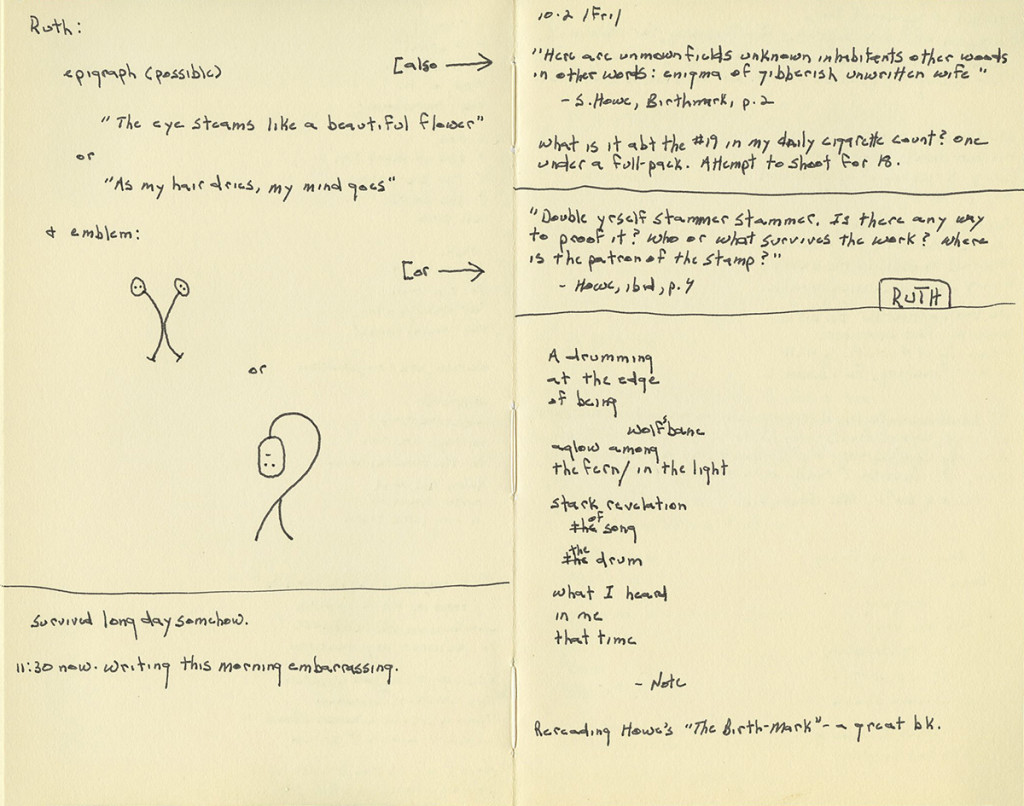 Ruth:
epigraph (possible)
[also →
"The eye steams like a beautiful flower"
or
"As my hair dries, my mind goes"
& emblem:
[or →
or
Survived long day somehow.
11:30 now. Writing this morning embarrassing.
10.2 /Fri/
"Here are unmown fields unknown inhabitents other woods
in other words: enigma of gibberish unwritten wife"
- S. Howe, Birthmark, p.2
What is it abt the #19 in my daily cigarette count? One
under a full-pack. Attempt to shoot for 18.
"Double yrself stammer stammer. Is there any way
to proof it? Who or what survives the work? Where
is the patron of the stamp?"
- Howe, ibid, p.4
RUTH
A drumming
at the edge
of being
wolfsbane
aglow among
the fern/ in the light
stark revelation
of
the song
the
the drum
what I heard
in me
that time
- Note
Rereading Howe's "The Birth-Mark" - a great bk.